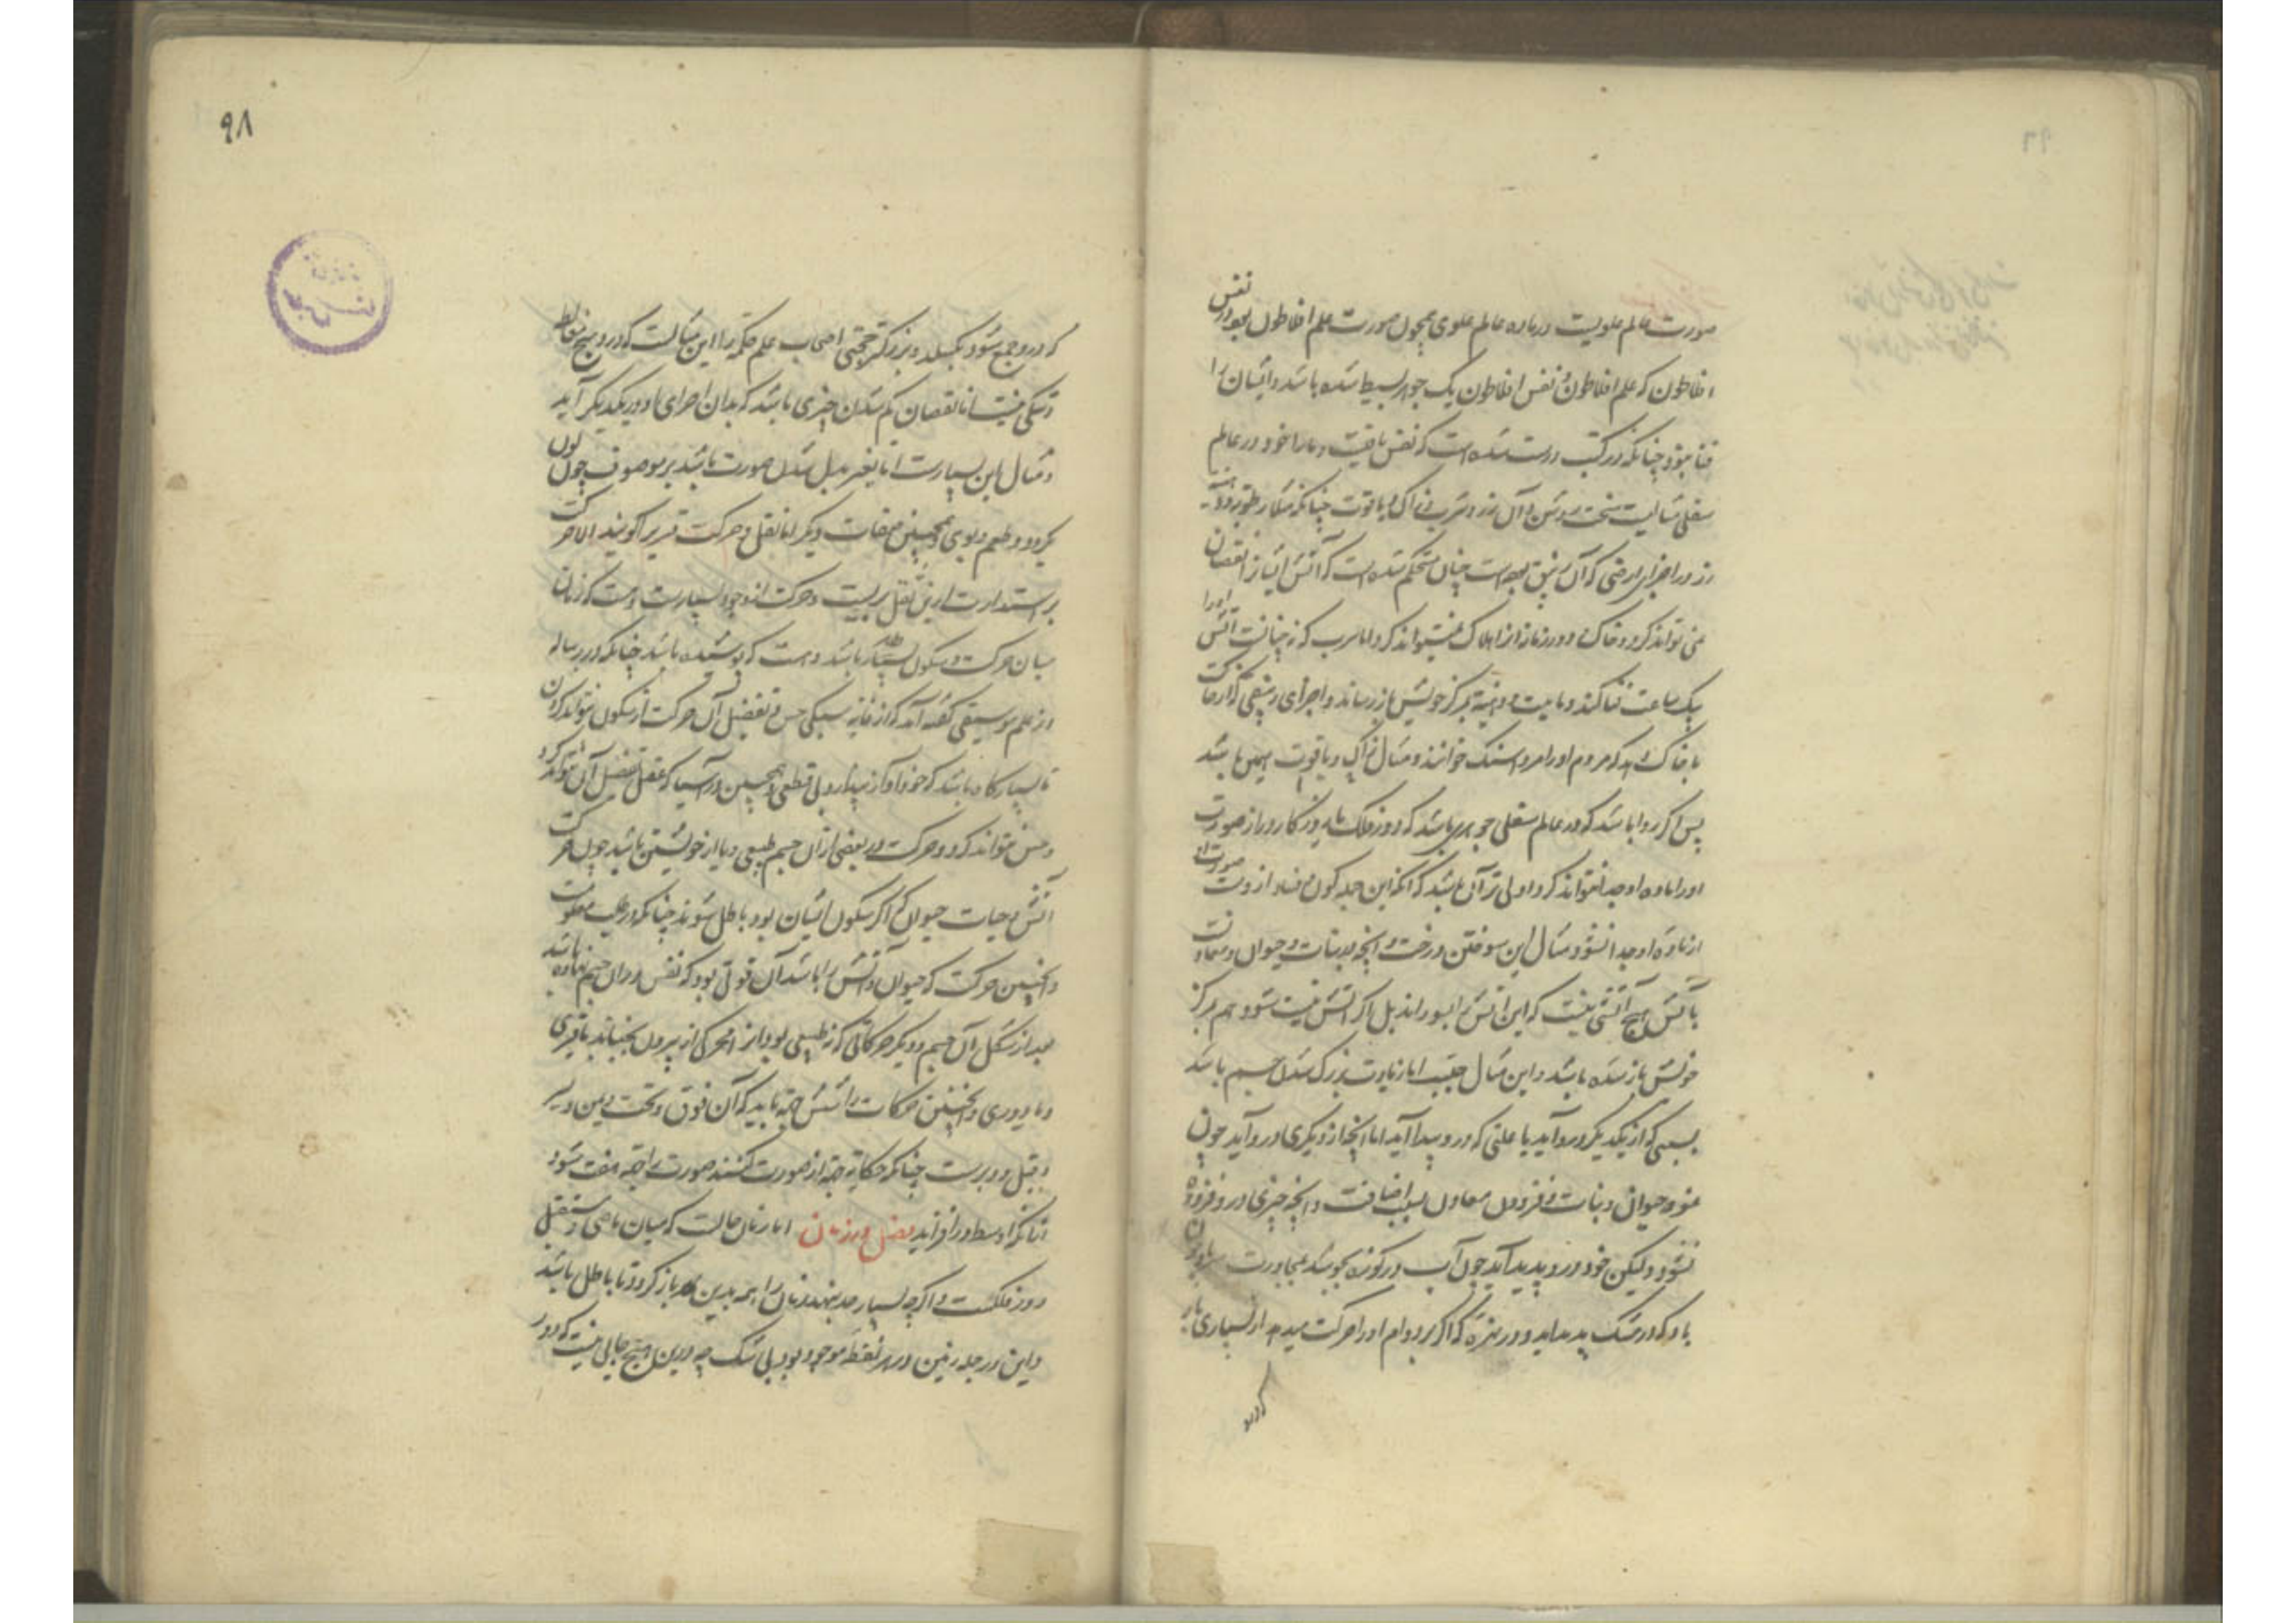 صورت عالم علویت در ماده عالم علوی همچون صورت علم افلاطون بود در نفس
افلاطون که علم افلاطون و نفس افلاطون یک جوهر بسیط شده باشد و ایشان را
فنا نبود چنانکه در کتب درست شده است که نفس باقیست و ما را خود در عالم
سفلی مثالیست سخت روشن و آن زر و
زر در اجزای ارضی که آن زیبق بوده است چنان مستحکم شده است که آتش ایشان را نقصان
نمی تواند کرد و خاک او را
یک ساعت فنا کند و مر کز خویش باز رساند و اجزای زیبقی که از حرکت
با خاک اند که مردم او را مردا سنک خوانند و مثال زر و یاقوت همین باشد
پس اگر روا باشد که در عالم سفلی جوهری باشد که دور فلک و روزکار دراز صورت
او را از ماده او جدا نتواند کرد اولی تر آن باشد که آنکه این جمله کون و فساد از وست صورت او
از ماده او جدا نشود و مثال این سوختن درخت و آنچه بدو ماند نبات و حیوان و معادن
بآتش هیچ آتشی نیست که این آتش را بسوزاند بل اگر آتش نیست شود هم بمرکز
خویش باز شده باشد و این مثال عجیب اما زیادت بزرک شدن جسم باشد
بسببی که از یکدیگر درو آید یا علتی که درو پیدا آید اما آنچه از دیگری درو آید چون
نمو حیوان و نبات و فزودن معادن بسبب اضافت و آنچه چیزی درو فزوده
نشود ولیکن خود درو پدید آید چون آب در کوزه بجوشد بمجاورت
باد که در مشک پدید آید و در که اگر بر دوام او را حرکت میدهد از بسیاری باد
که درو
۹۸
که درو جمع شود بگسلد و بزرکتر حجتی اصحاب علم حکمة را این مثالست که درو هیچ مغالطه
و شکی نیست اما نقصان کم شدن چیزی باشد که بدان اجزای او در یکدیگر آید
و مثال این بسیارست اما تغیر بدل شدن صورت باشد بر موصوف چون لون
بگردد و طعم و بوی و همچنین صفات دیگر اما نقل و حرکت قریب اگویند الا حرکت
بر استدارت از این نقل بریست و حرکت از وجوه بسیارست و هست که زمان
میان حرکت و سکون بسیار باشد و هست که پوشیده باشد چنانکه در رساله
از علم موسیقی گفته آمد که از غایة سبکی حس تفضیل آن حرکت از سکون نتواند کردن
تا بسیار کاه باشد که خود آواز پندارد بی قطعی و همچنین در آسیا که عقل تفضیل آن تواند کرد
و حس نتواند کرد و حرکت در بعضی از آن جسم طبیعی و یا از خویشتن باشد چون حرکت
آتش و حیات حیوان که اگر سکون ایشان بود باطل شوند چنانکه در طب معلومست
و اینچنین حرکت که حیوان و آتش را باشد آن قوتی بود که نفس در آن جسم نهاده باشد
بعد از شکل آن جسم و دیگر حرکاتی که نه طبیعی بود از محرکی از بیرون بجنباند یا قسری
و یا دوری و اینچنین حرکات را شش جهة باید که آن فوق و تحت و یمن و یسر
و قبل و دبرست چنانکه حکایة جهة از صورت کنند صورت را جهة هفت شود
آنانکه اوسط در افزایند فصل در زمان اما زمان حالست که میان ماضی و مستقبل
دور فلکست و اگرچه بسیار حد نهند زمان را همه بدین باز کردد تا باطل باشد
و این در جمله زمین در هر نقطه موجود بود بی شک چه درین هیچ جایی نیست که دور